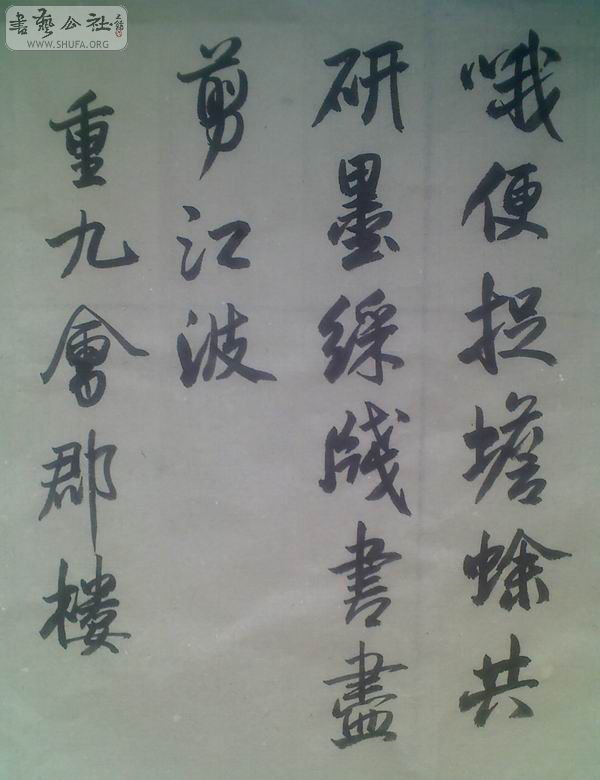 哦便捉蟾蜍共
研墨綵牋書盡
剪江波
重九會郡樓
書藝公社
WWW.SHUFA.ORG